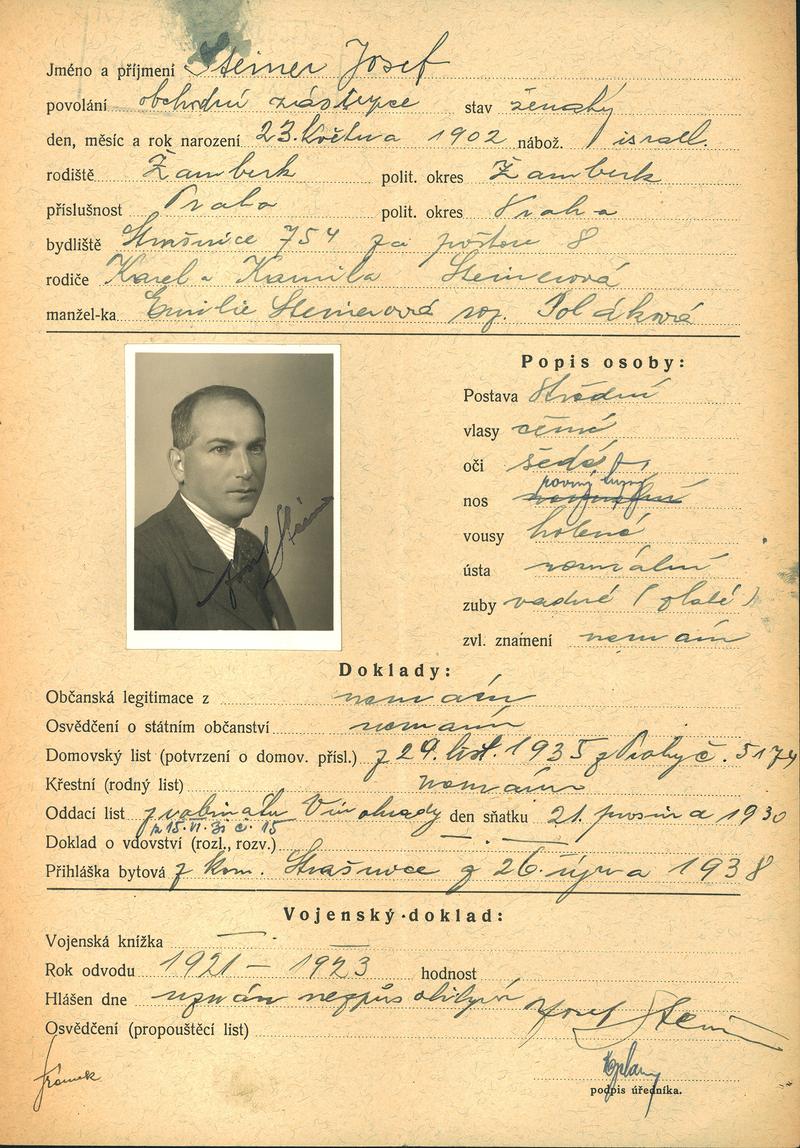 Jméno a příjmení Steiner Josef
povolání obchodní zástupce stav ženatý
den, měsíc a rok narození 23. května 1902 nábož. israel.
rodiště Žamberk polit. okres Žamberk
příslušnost Praha polit. okres Praha
bydliště Strašnice 754 za poštou 8
rodiče Karel a Kamila Steinerová
manžel-ka Emilie Steinerová roz. Poláková
Popis osoby:
Postava střední
vlasy černé
oči šedé
nos rovný
vousy holené
ústa normální
zuby vadné (zlaté)
zvl. znamení nemám
Josef Steiner
Doklady:
Občanská legitimace z nemám
Osvědčení o státním občanství nemám
Domovský list (potvrzení o domov. přísl.) z 29. list. 1935 z Prahy č. 5174
Křestní (rodný list) nemám
Oddací list z rabinátu Vinohrady den sňatku 21. prosince 1930
z 15. VI. 31 č. 15
Doklad o vdovství (rozl., rozv.) — . —
Přihláška bytová z kom. Strašnice z 26. října 1938
Vojenský doklad:
Vojenská knížka — —
Rok odvodu 1921 – 1923 hodnost
Hlášen dne uznán nezpůsobilým
Josef Steiner
Osvědčení (propouštěcí list)
podpis úředníka.